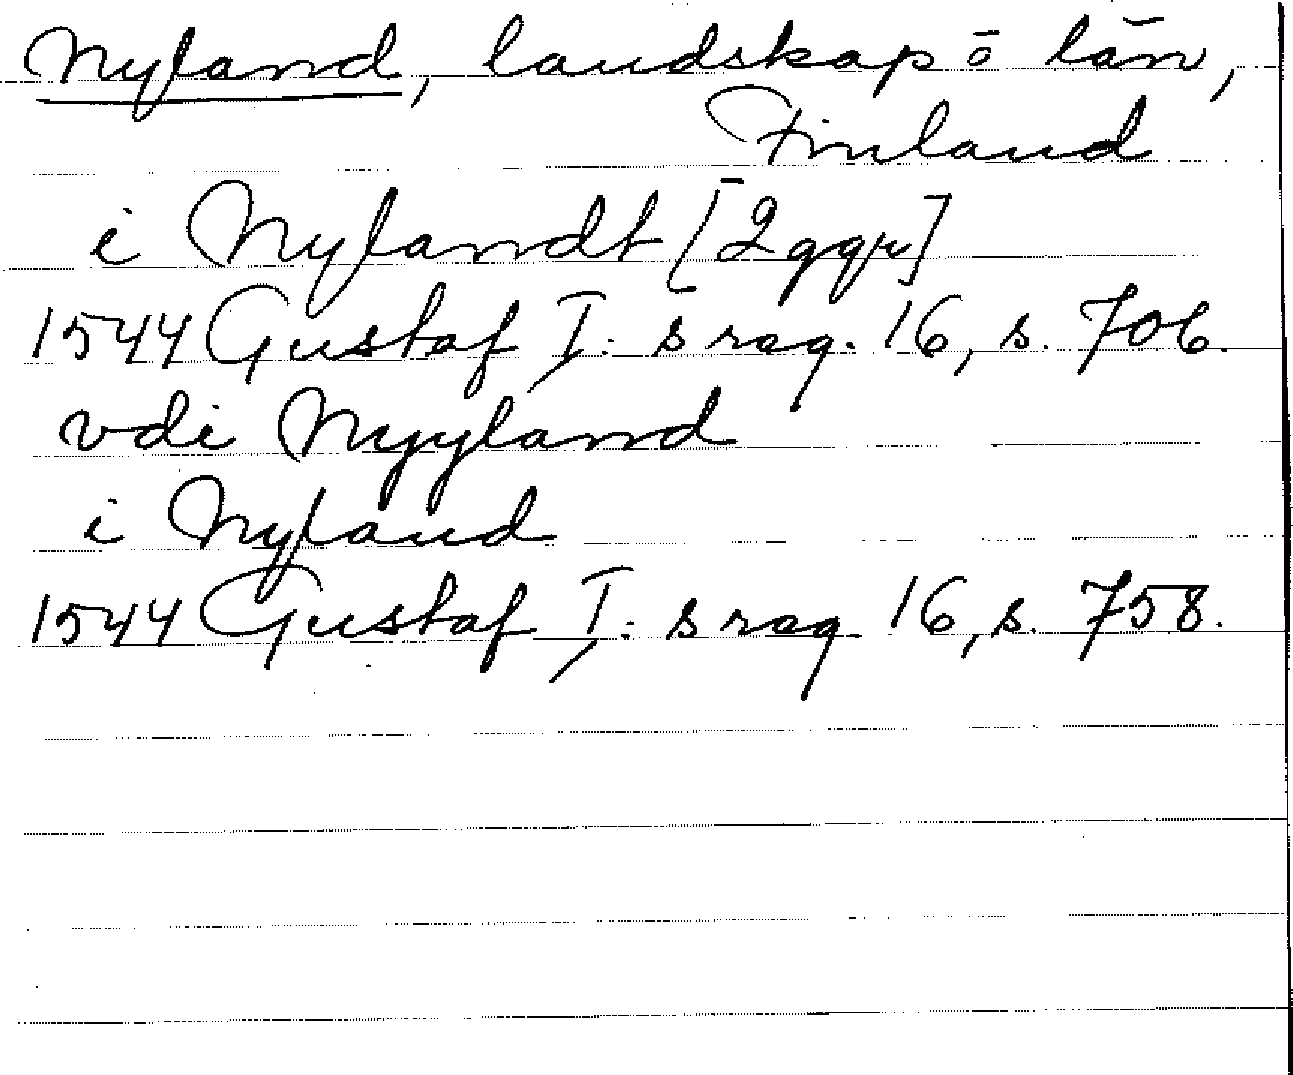 Nyland, landskap o län,
Finland
i Nylandt [2 ggr]
1544 Gustaf I:s reg. 16, s. 706.
vdi Nyyland
i Nyland
1544 Gustaf I:s reg 16, s. 758.